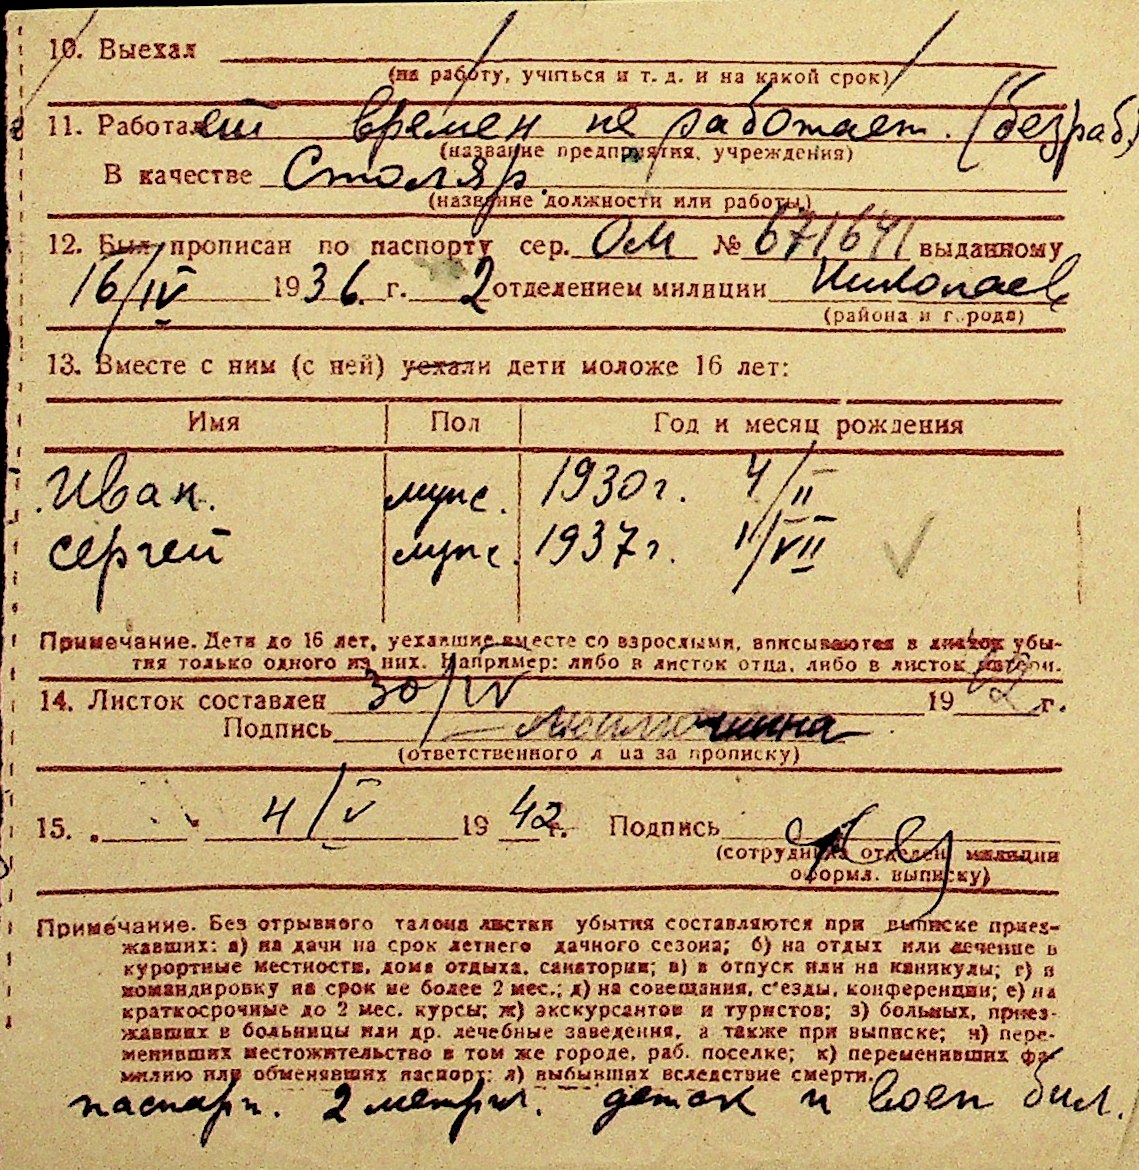 10. Выехал
(на работу, учиться и т. д. и на какой срок)
11. Работает времен не работает. (безраб.)
(название предприятия, учреждения)
В качестве Столяр.
(название должности или работы)
12. Был прописан по паспорту сер. ОМ № 671641 выданному
16/IV 1936. г. 2 отделением милиции Николаев
(района и города)
13. Вместе с ним (с ней) уехали дети моложе 16 лет:
Имя Пол Год и месяц рождения
Иван. муж. 1930 г. 4/II
Сергей муж. 1937 г. 11/VII
Примечание. Дети до 16 лет, уехавшие вместе со взрослыми, вписываются в листок убы-
тия только одного из них. Например: либо в листок отца, либо в листок матери.
14. Листок составлен 30/IV 1942 г.
Подпись
(ответственного лица за прописку)
15. „ " 4/V 1942 г. Подпись
(сотрудника отделен. милиции
оформл. выписку)
Примечание. Без отрывного талона листки убытия составляются при выписке приез-
жавших: а) на дачи на срок летнего дачного сезона; б) на отдых или лечение в
курортные местности, дома отдыха, санатории; в) в отпуск или на каникулы; г) в
командировку на срок не более 2 мес.; д) на совещания, с'езды, конференции; е) на
краткосрочные до 2 мес. курсы; ж) экскурсантов и туристов; з) больных, приез-
жавших в больницы или др. лечебные заведения, а также при выписке; и) пере-
менивших местожительство в том же городе, раб. поселке; к) переменивших фа-
милию или обменявших паспорт; л) выбывших вследствие смерти.
паспорт. 2 метрик. детск и воен бил.